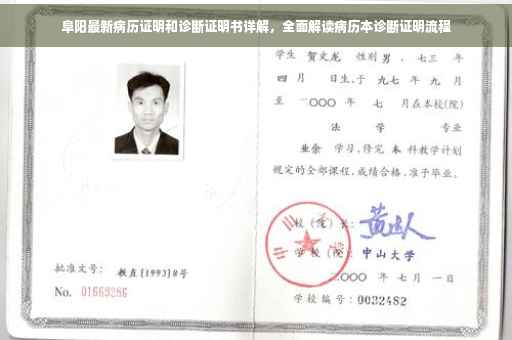 阜阳最新病历证明和诊断证明书详解，全面解读病历本诊断证明流程
学生 贺文龙 性别 男 ，七三 年
四 月 日生,于 九七 年 九 月
至 二〇〇〇 年 七 月在本校(院)
法 学 专业
业余 学习,修完 本 科教学计划
规定的全部课程,成绩合格,准予毕业。
校（院）长：
学 校（院）：中山大学
二〇〇〇 年 七 月 一 日
批准文号： 教直(1993)8号
No. 01663286
学校编号：0032482